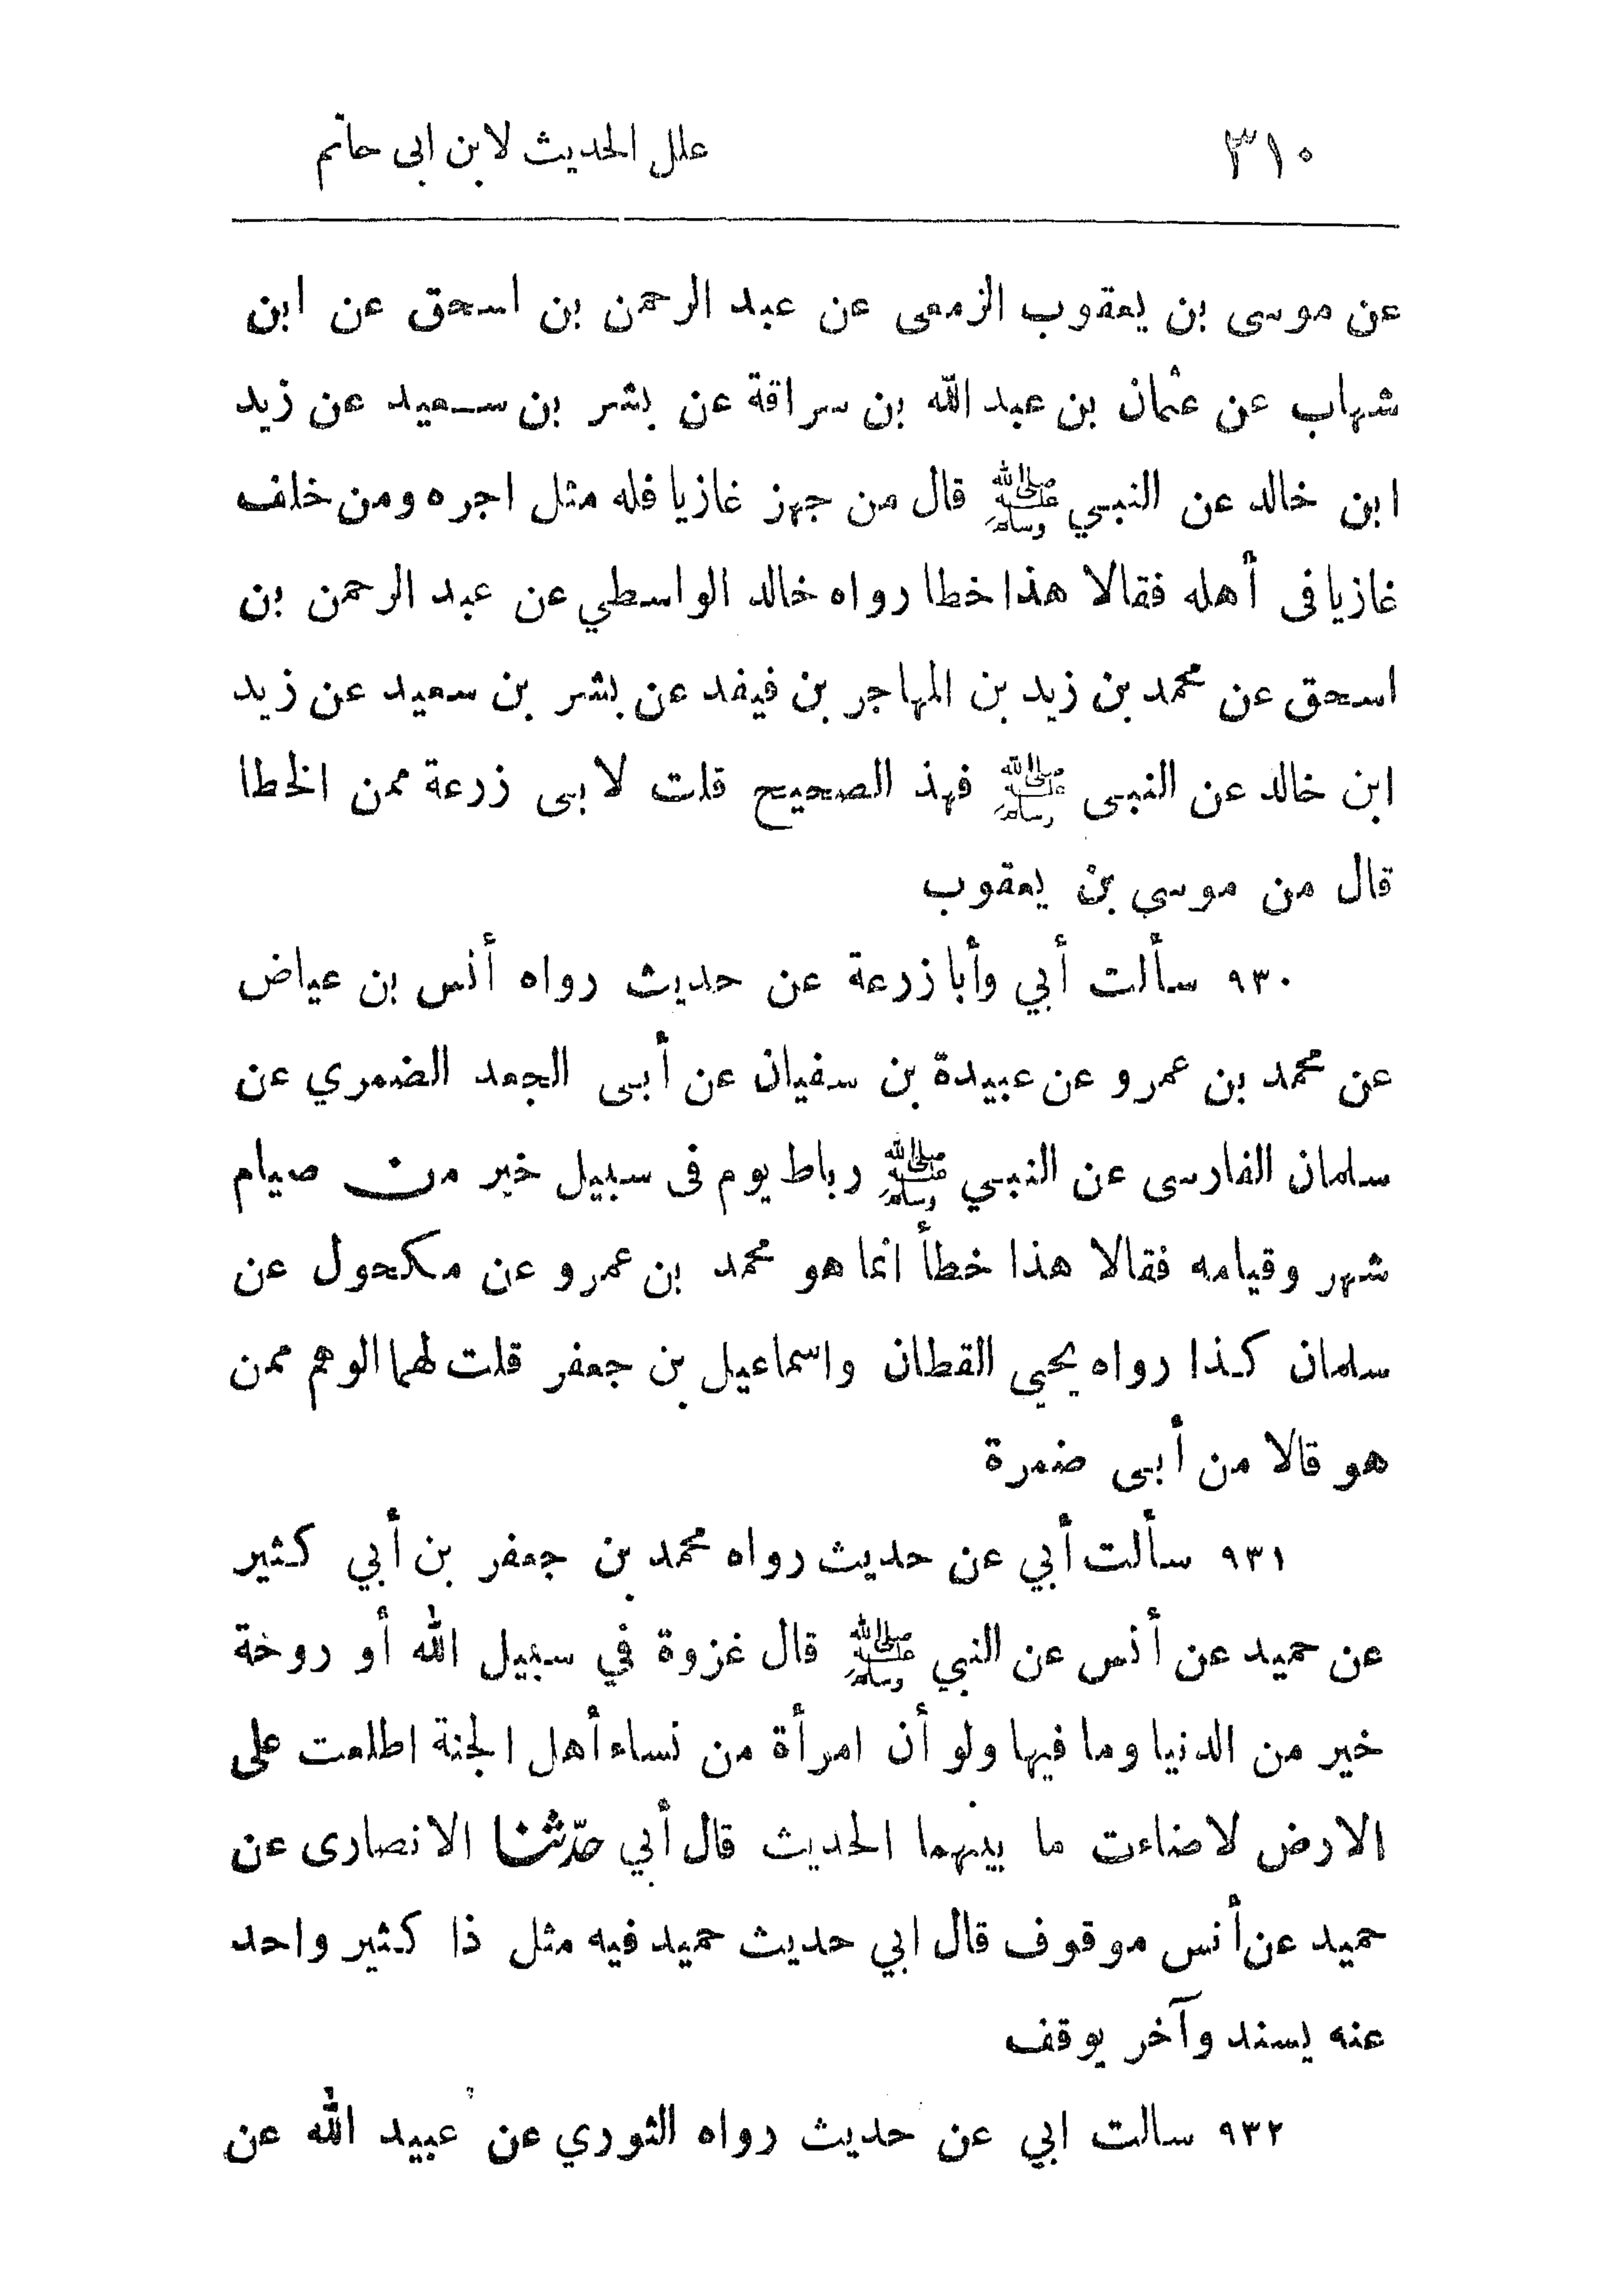 ٣١٠ علل الحديث لابن ابى حاتم
عن موسى بن يعقوب الزمعى عن عبد الرحمن بن اسحق عن ابن
شهاب عن عثمان بن عبد الله بن سراقة عن بشر بن سعيد عن زيد
ابن خالد عن النبي ﷺ قال من جهز غازيا فله مثل اجره ومن خلف
غازيا فى أهله فقالا هذا خطا رواه خالد الواسطي عن عبد الرحمن بن
اسحق عن محمد بن زيد بن المهاجر بن فيفد عن بشر بن سعيد عن زيد
ابن خالد عن النبى ﷺ فهذ الصحيح قلت لابى زرعة ممن الخطا
قال من موسى بن يعقوب
٩٣٠ سألت أبي وأبا زرعة عن حديث رواه أنس بن عياض
عن محمد بن عمرو عن عبيدة بن سفيان عن أبى الجعد الضمري عن
سلمان الفارسى عن النبي ﷺ رباط يوم فى سبيل خير من صيام
شهر وقيامه فقالا هذا خطأ انما هو محمد بن عمرو عن مكحول عن
سلمان كذا رواه يحيى القطان واسماعيل بن جعفر قلت لهما الوهم ممن
هو قالا من أبى ضمرة
٩٣١ سألت أبي عن حديث رواه محمد بن جعفر بن أبي كثير
عن حميد عن أنس عن النبي ﷺ قال غزوة في سبيل الله أو روخة
خير من الدنيا وما فيها ولو أن امرأة من نساء أهل الجنة اطلعت على
الارض لاضاءت ما بينهما الحديث قال أبي حدّثنا الانصارى عن
حميد عن أنس موقوف قال ابي حديث حميد فيه مثل ذا كثير واحد
عنه يسند وآخر يوقف
٩٣٢ سالت ابي عن حديث رواه الثوري عن عبيد الله عن